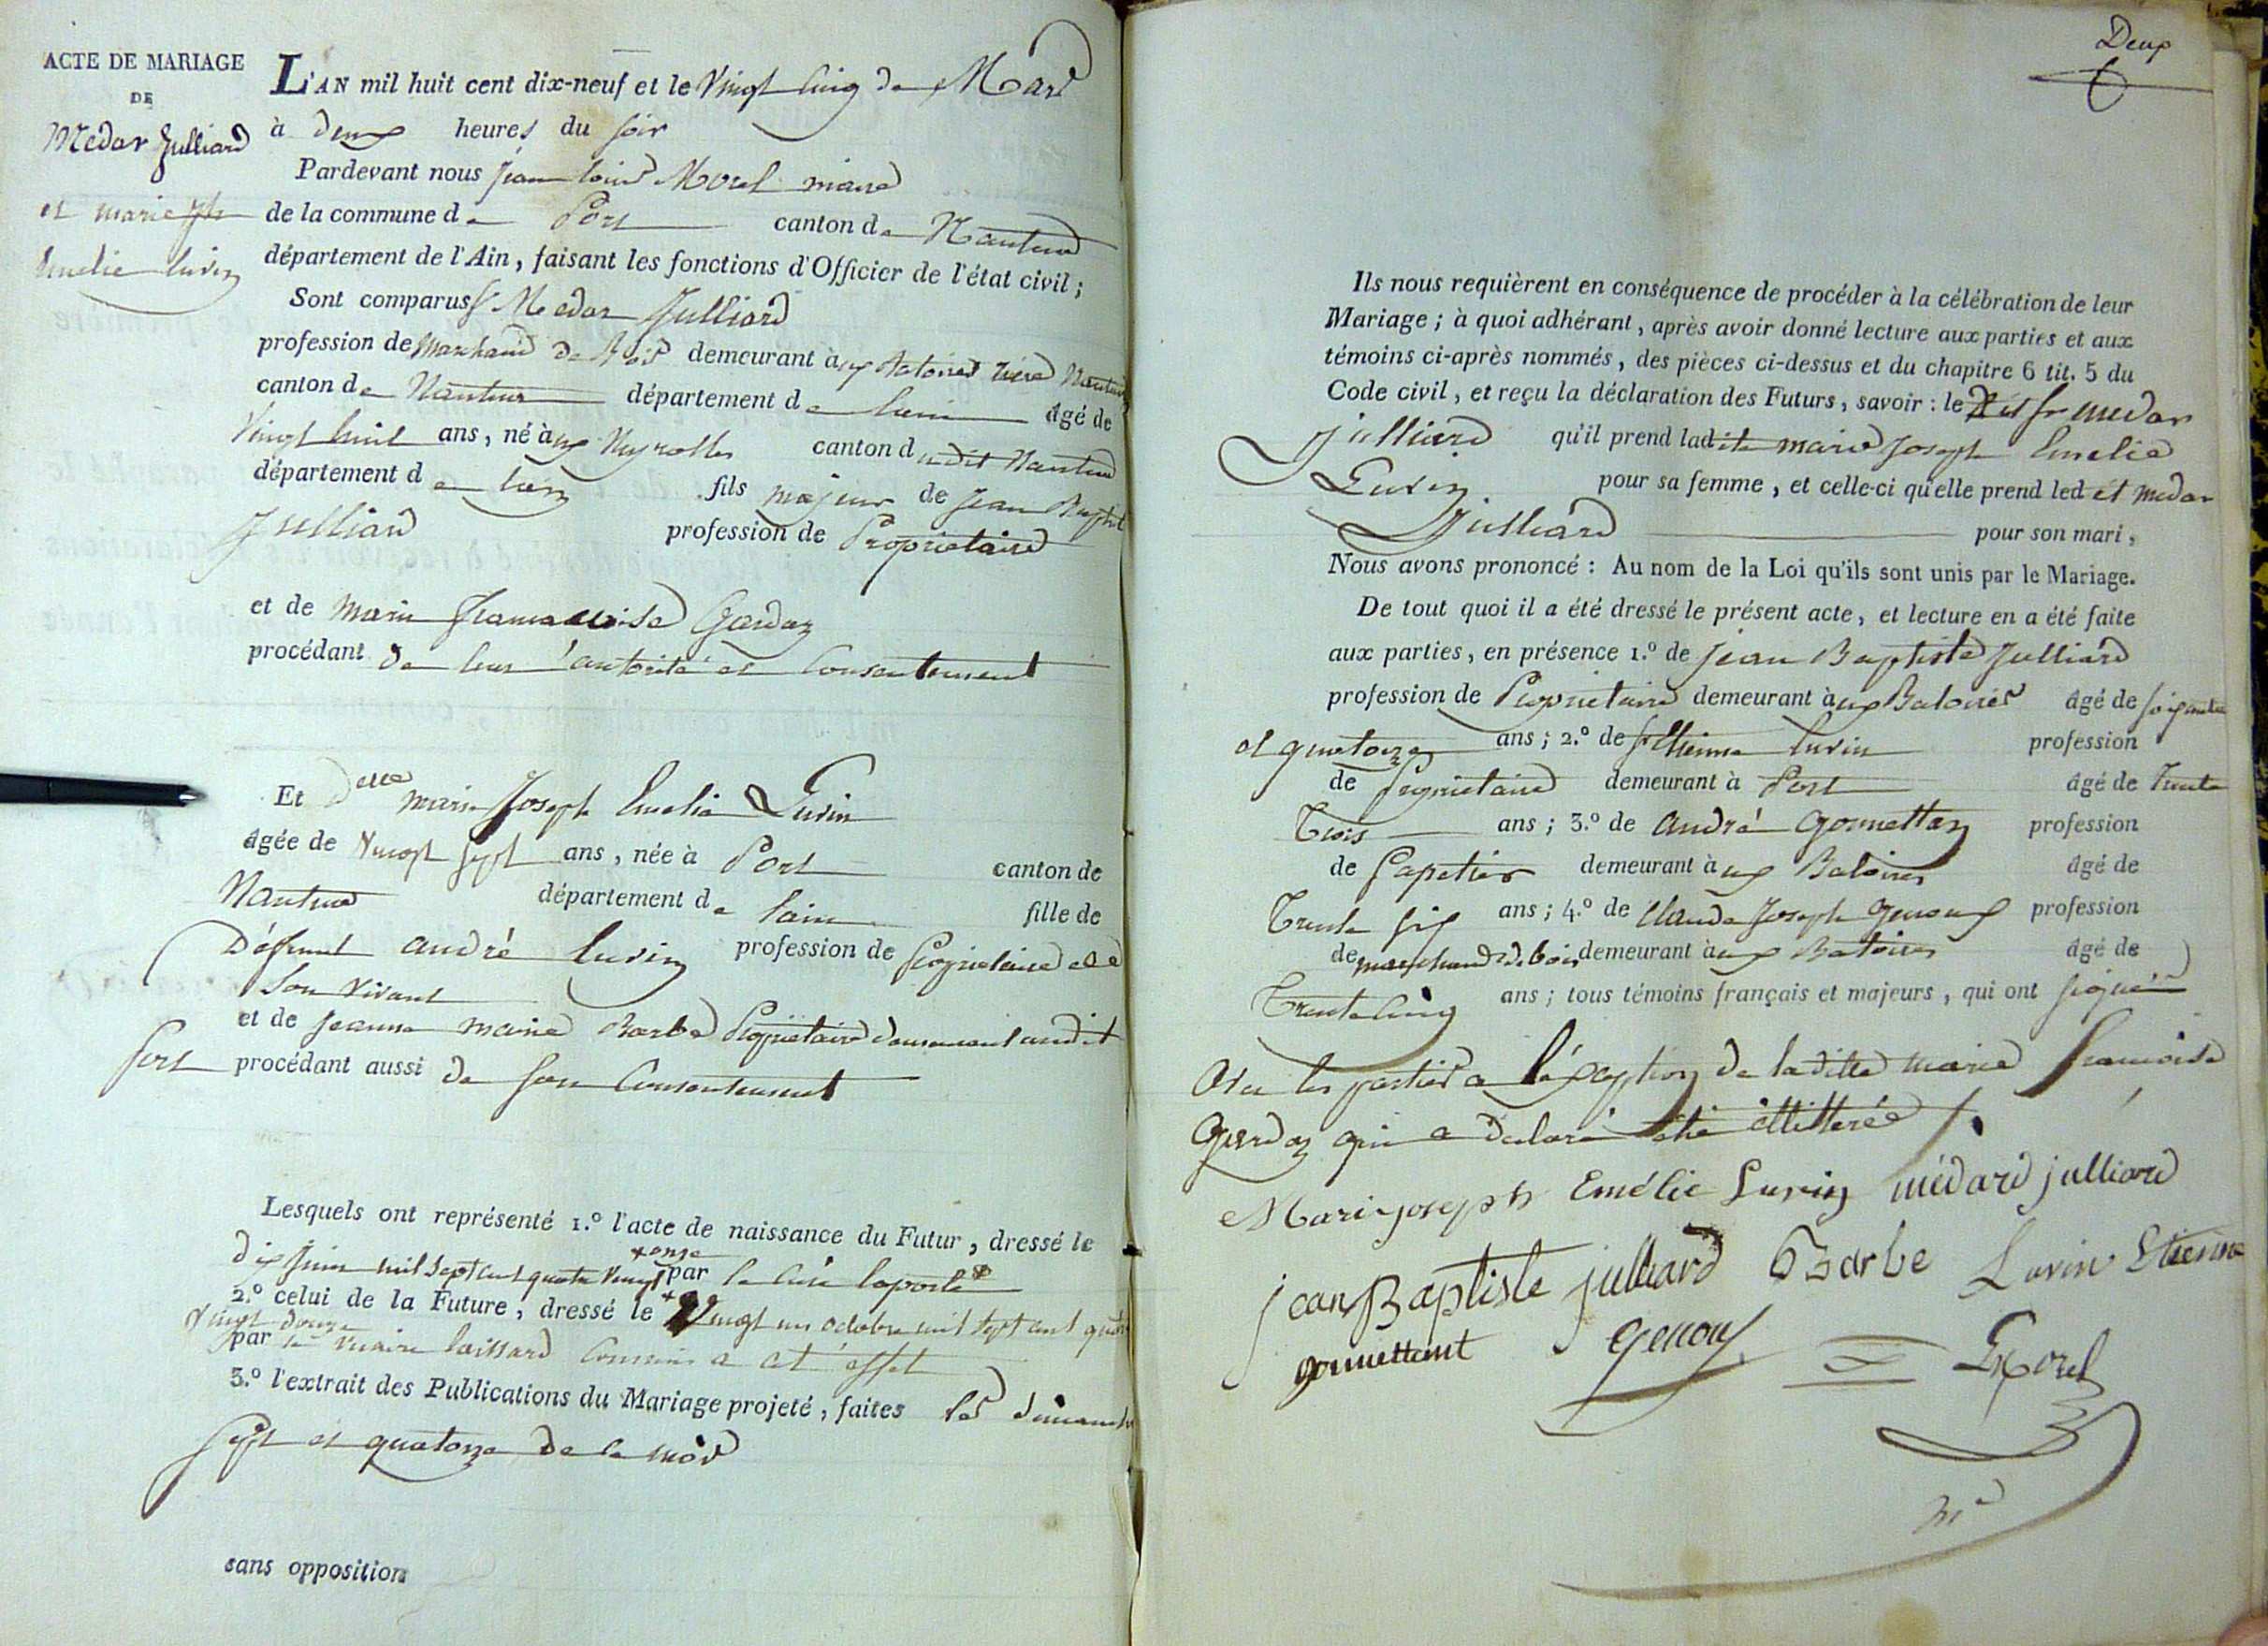 ACTE DE MARIAGE
DE
Medar Julliard
et marie jph
Emelie Luvin
L'AN mil huit cent dix-neuf et le Vingt Cinq de Mars
à deux heures du soir
Pardevant nous Jean Louis Morel maire
de la commune de Port canton de Nantua
département de l'Ain, faisant les fonctions d'Officier de l'état civil;
Sont comparus Sr Medar Julliard
profession de Marchand de Bois demeurant aux Batoires rière Nantua
canton de Nantua département de Lain âgé de
Vingt huit ans, né à aux Neyrolles canton dudit Nantua
département de Lain fils majeur de Jean Baptiste
Julliard profession de Propriétaire
et de Marie francoise Gardaz
procédant de leur autorité et Consentement
Et Delle marie Joseph Emelie Luvin
âgée de Vingt sept ans, née à Port canton de
Nantua département de Lain fille de
Défunt andré Luvin profession de Propriétaire
Son vivant
et de Jeanne marie Barbe Propriétaire demeurant audit
Port procédant aussi de son Consentement
Lesquels ont représenté 1.º l'acte de naissance du Futur, dressé le
dix juin mil sept cent quatre vingt onze par le Curé laporte
2.º celui de la Future, dressé le Vingt un octobre mil sept cent quatre
vingt douze
par le vicaire laissard Commis a cet effet
3.º l'extrait des Publications du Mariage projeté, faites les dimanches
sept et quatorze de ce mois
sans opposition
Deux
Ils nous requièrent en conséquence de procéder à la célébration de leur
Mariage; à quoi adhérant, après avoir donné lecture aux parties et aux
témoins ci-après nommés, des pièces ci-dessus et du chapitre 6 tit. 5 du
Code civil, et reçu la déclaration des Futurs, savoir: le dit sr medar
Julliard qu'il prend ladite marie Joseph Emelie
Luvin pour sa femme, et celle-ci qu'elle prend ledit medar
Julliard pour son mari,
Nous avons prononcé: Au nom de la Loi qu'ils sont unis par le Mariage.
De tout quoi il a été dressé le présent acte, et lecture en a été faite
aux parties, en présence 1.º de jean Baptiste Julliard
profession de Propriétaire demeurant aux Batoires âgé de soixante
et quatorze ans; 2.º de sr Etienne Luvin profession
de Propriétaire demeurant à Port âgé de Trente
Trois ans; 3.º de andré Gonnettan profession
de Papetier demeurant aux Batoires âgé de
Trente six ans; 4.º de Claude Joseph Genoux profession
de marchand de bois demeurant aux Batoires âgé de
Trente Cinq ans; tous témoins français et majeurs, qui ont signé
et les parties a l'exception de laditte marie francoise
Gardaz qui a déclaré être illitterée
Mari joseph Emélie Luvin médard julliard
jean Baptiste julliard Barbe Luvin Etienne
gonnettant Genoux Morel